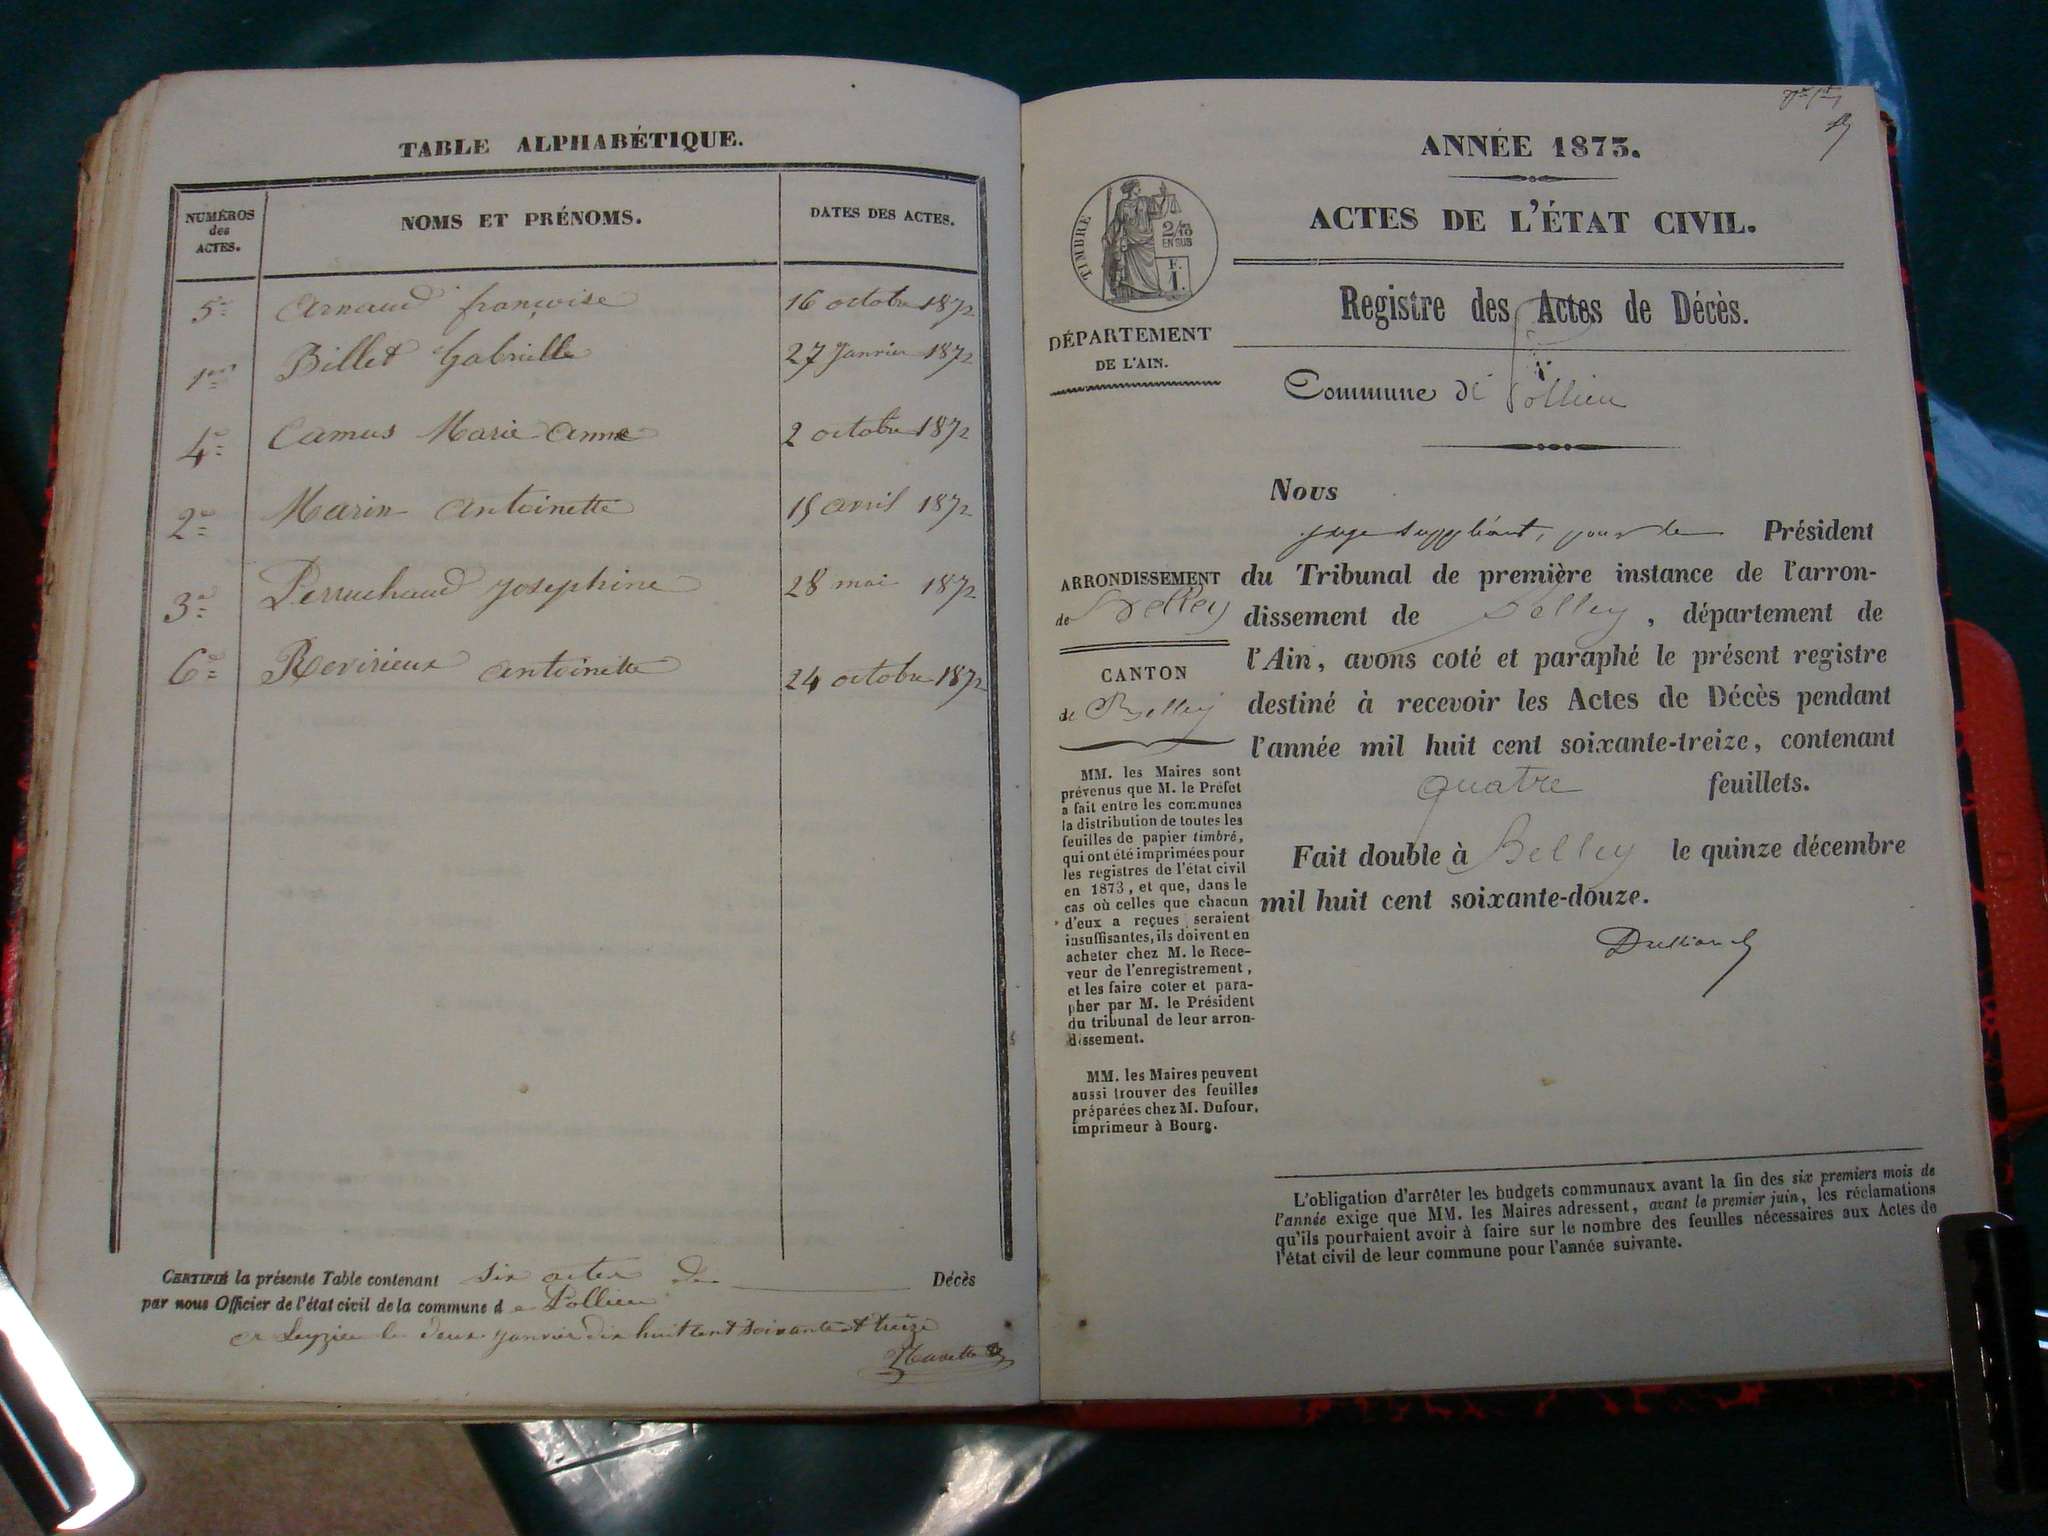 TABLE ALPHABÉTIQUE.
NUMÉROS
des
ACTES.
NOMS ET PRÉNOMS.
DATES DES ACTES.
5e Arnaud françoise 16 octobre 1872
1er Billet Gabrielle 27 Janvier 1872
4e Camus Marie Anne 2 octobre 1872
2e Marin Antoinette 15 avril 1872
3e Perruchaud Josephine 28 mai 1872
6e Revirieux Antoinette 24 octobre 1872
CERTIFIÉ la présente Table contenant six actes de Décès
par nous Officier de l'état civil de la commune de Pollieu
le deux janvier dix huit cent soixante et treize
ANNÉE 1873.
ACTES DE L'ÉTAT CIVIL.
TIMBRE
2/10
EN SUS
F.
1.
DÉPARTEMENT
DE L'AIN.
Registre des Actes de Décès.
Commune de Pollieu
Nous
juge suppléant, pour le Président
du Tribunal de première instance de l'arron-
dissement de Belley, département de
l'Ain, avons coté et paraphé le présent registre
destiné à recevoir les Actes de Décès pendant
l'année mil huit cent soixante-treize, contenant
quatre feuillets.
Fait double à Belley le quinze décembre
mil huit cent soixante-douze.
ARRONDISSEMENT
de Belley
CANTON
de Belley
MM. les Maires sont
prévenus que M. le Préfet
a fait entre les communes
la distribution de toutes les
feuilles de papier timbré,
qui ont été imprimées pour
les registres de l'état civil
en 1873, et que, dans le
cas où celles que chacun
d'eux a reçues seraient
insuffisantes, ils doivent en
acheter chez M. le Rece-
veur de l'enregistrement,
et les faire coter et para-
pher par M. le Président
du tribunal de leur arron-
dissement.
MM. les Maires peuvent
aussi trouver des feuilles
préparées chez M. Dufour,
imprimeur à Bourg.
L'obligation d'arrêter les budgets communaux avant la fin des six premiers mois de
l'année exige que MM. les Maires adressent, avant le premier juin, les réclamations
qu'ils pourraient avoir à faire sur le nombre des feuilles nécessaires aux Actes de
l'état civil de leur commune pour l'année suivante.